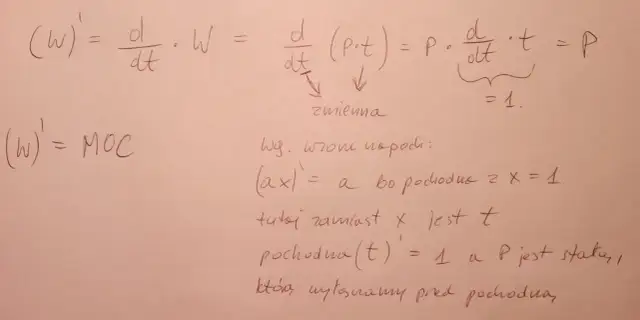 (W)' = d/dt · W = d/dt (P·t) = P · d/dt · t = P
zmienna
= 1.
(W)' = MOC
Wg. wzoru na poch:
(ax)' = a bo pochodna z x = 1
tutaj zamiast x jest t
pochodna (t)' = 1 a P jest stałą,
którą wyłączamy przed pochodną